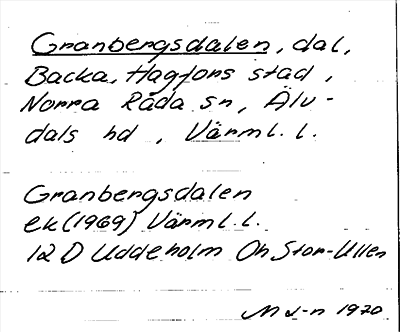 Granbergsdalen, dal,
Backa, Hagfors stad,
Norra Råda sn, Älv-
dals hd, Värml. l.
Granbergsdalen
ek (1969) Värml. l.
12 D Uddeholm Öh Stor-Ullen
1970